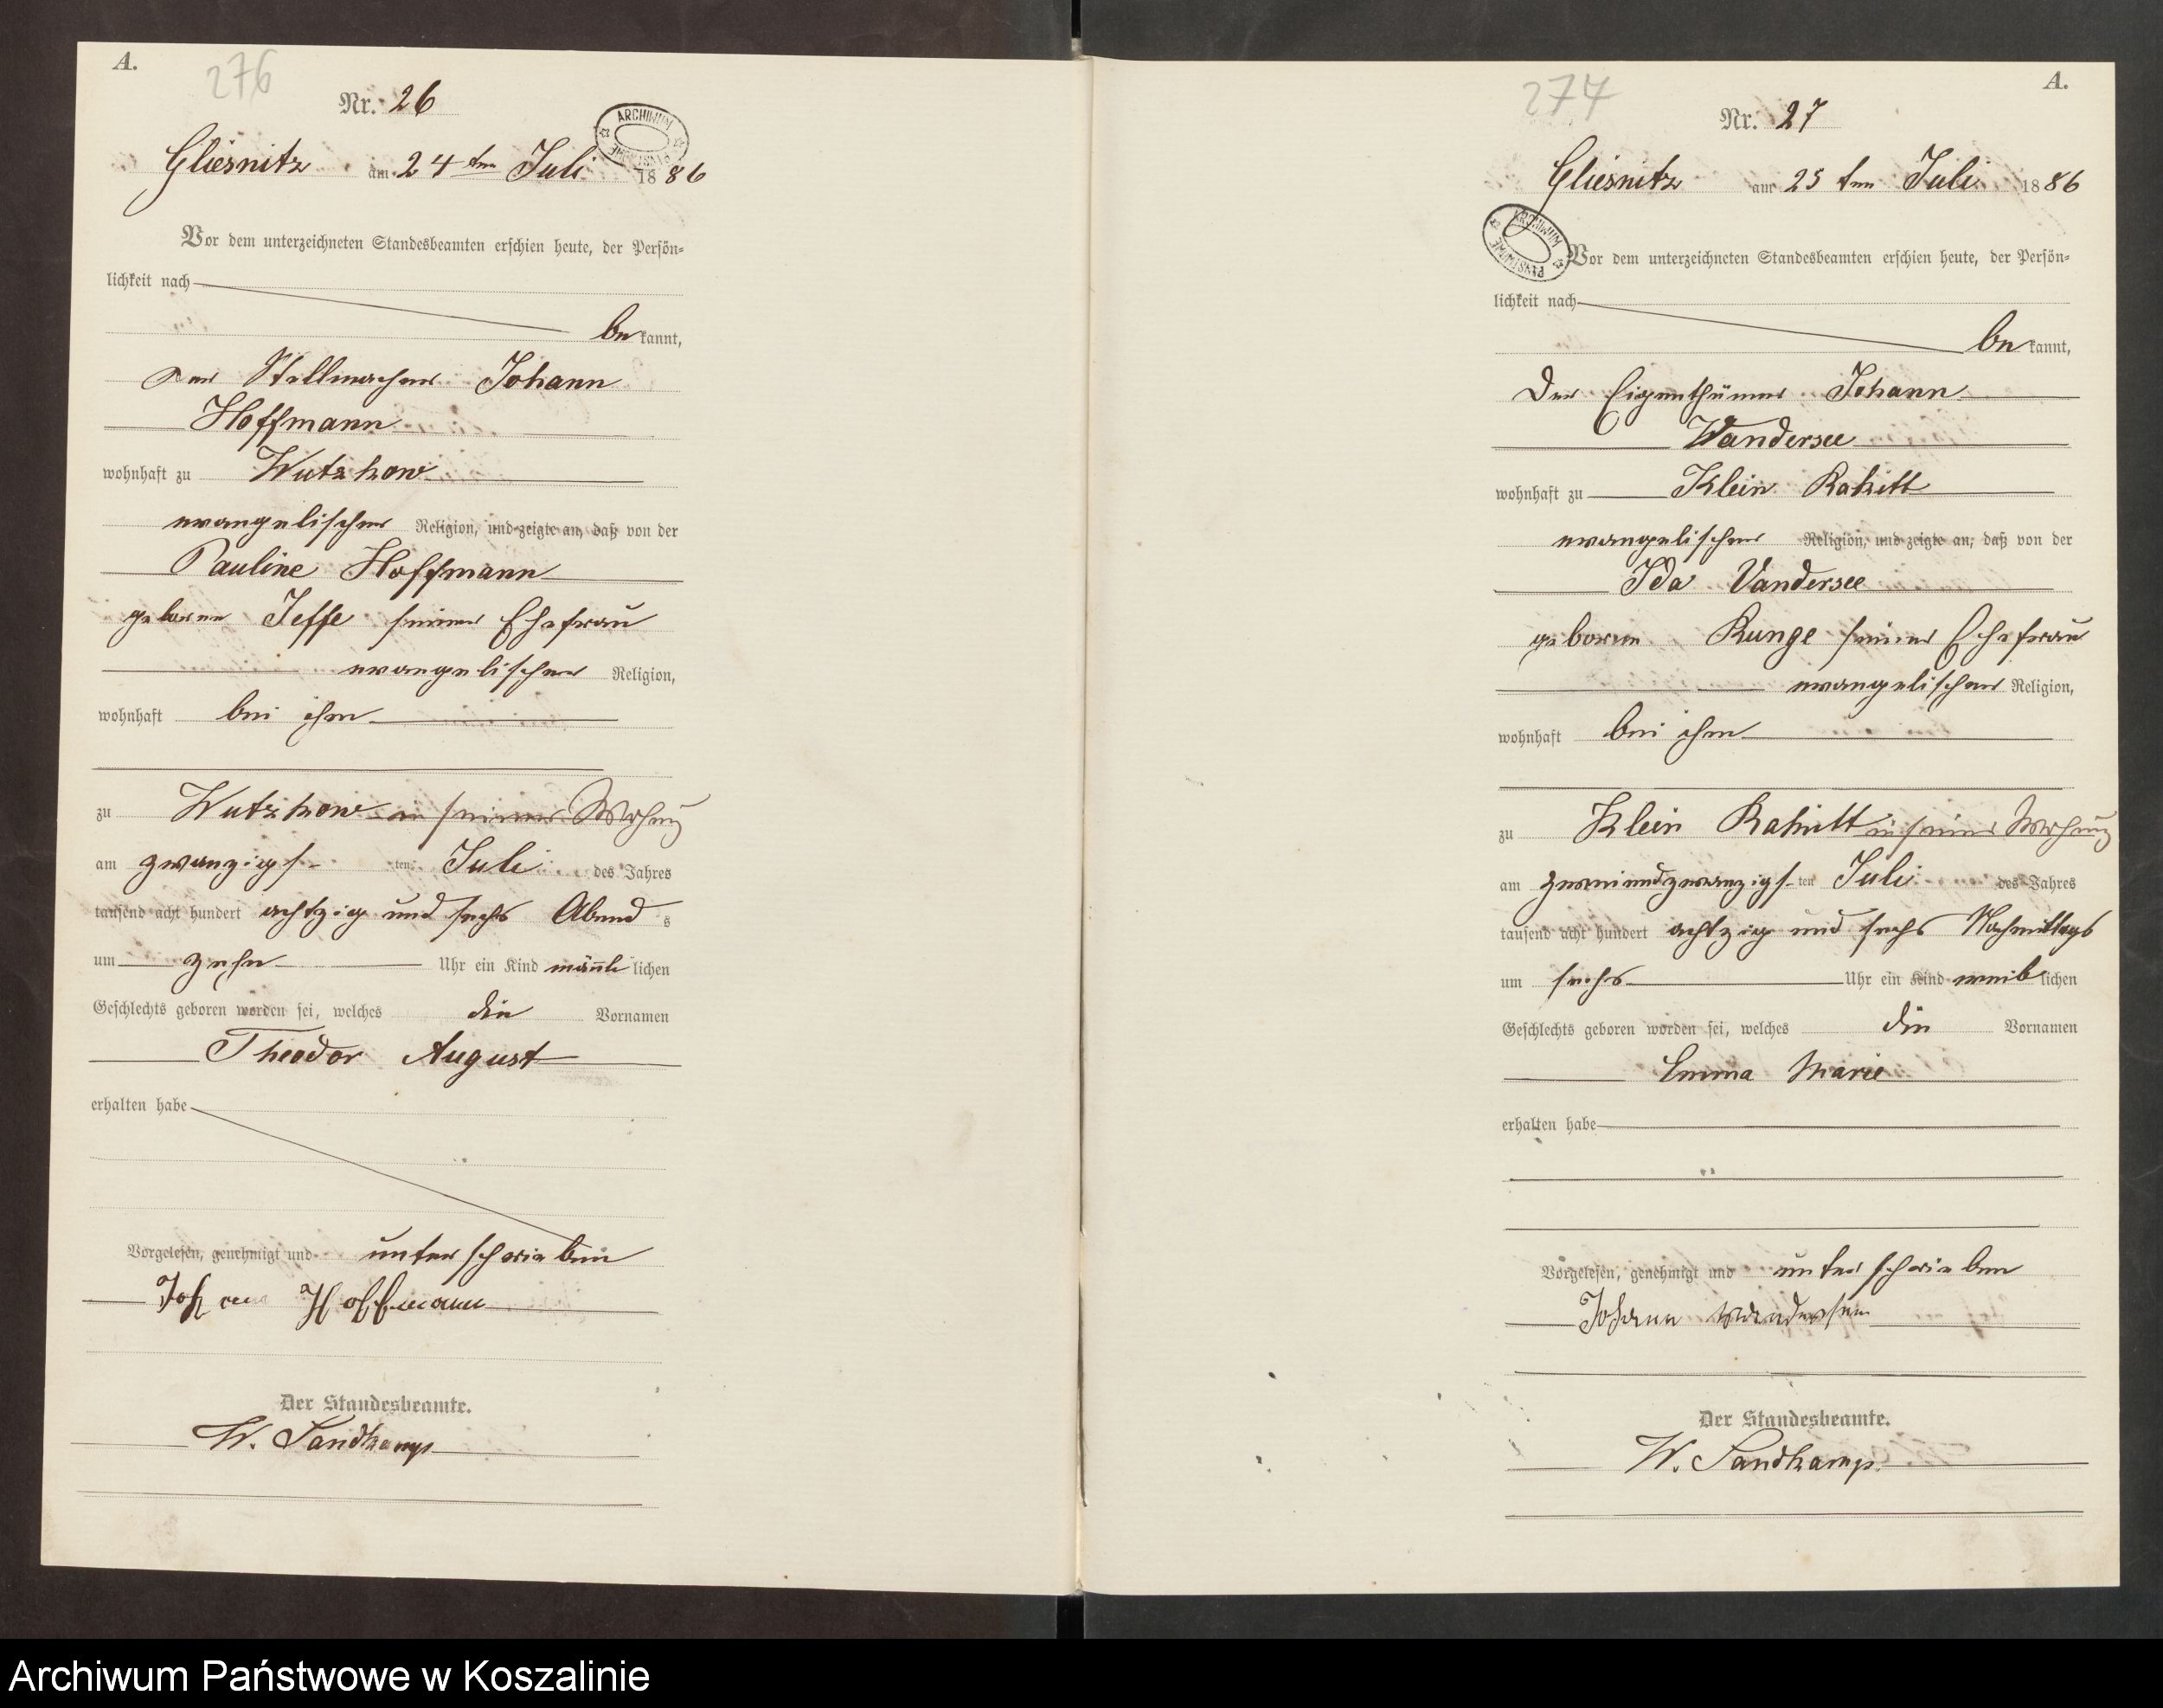 A.
276
Nr. 26
ARCHIWUM PAŃSTWOWE
Gliesnitz am 24 ten Juli 1886
Vor dem unterzeichneten Standesbeamten erschien heute, der Persön=
lichkeit nach
be kannt,
der Stellmacher Johann
Hoffmann
wohnhaft zu Wutzkow
evangelischer Religion, und zeigte an, daß von der
Pauline Hoffmann
geborne Jeffe seiner Ehefrau
evangelischer Religion,
wohnhaft bei ihm
zu Wutzkow in seiner Wohung
am zwanzigs ten Juli des Jahres
tausend acht hundert achtzig und sechs Abend s
um zehn Uhr ein Kind männlichen
Geschlechts geboren worden sei, welches die Vornamen
Theodor August
erhalten habe
Vorgelesen, genehmigt und unterschrieben
Johann Hoffmann
Der Standesbeamte.
W. Sandkamp
A.
277
Nr. 27
Gliesnitz am 25 ten Juli 1886
ARCHIWUM PAŃSTWOWE
Vor dem unterzeichneten Standesbeamten erschien heute, der Persön=
lichkeit nach
be kannt,
Der Eigenthümer Johann
Wandersee
wohnhaft zu Klein Rakitt
evangelischer Religion, und zeigte an, daß von der
Ida Vandersee
geborne Runge seiner Ehefrau
evangelischer Religion,
wohnhaft bei ihm
zu Klein Rakitt in seiner Wohung
am zweiundzwanzigs ten Juli des Jahres
tausend acht hundert achtzig und sechs Nachmittags
um sechs Uhr ein Kind weiblichen
Geschlechts geboren worden sei, welches die Vornamen
Emma Marie
erhalten habe
Vorgelesen, genehmigt und unterschrieben
Johann Wandersee
Der Standesbeamte.
W. Sandkamp
Archiwum Państwowe w Koszalinie